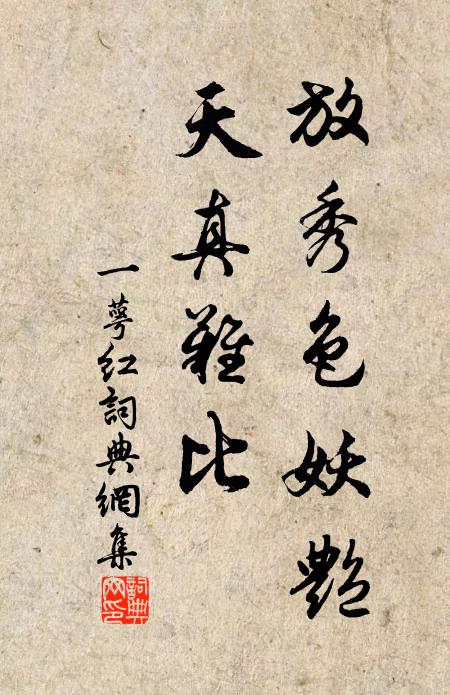 放秀色妖艷
天真難比
一萼紅詞典網集